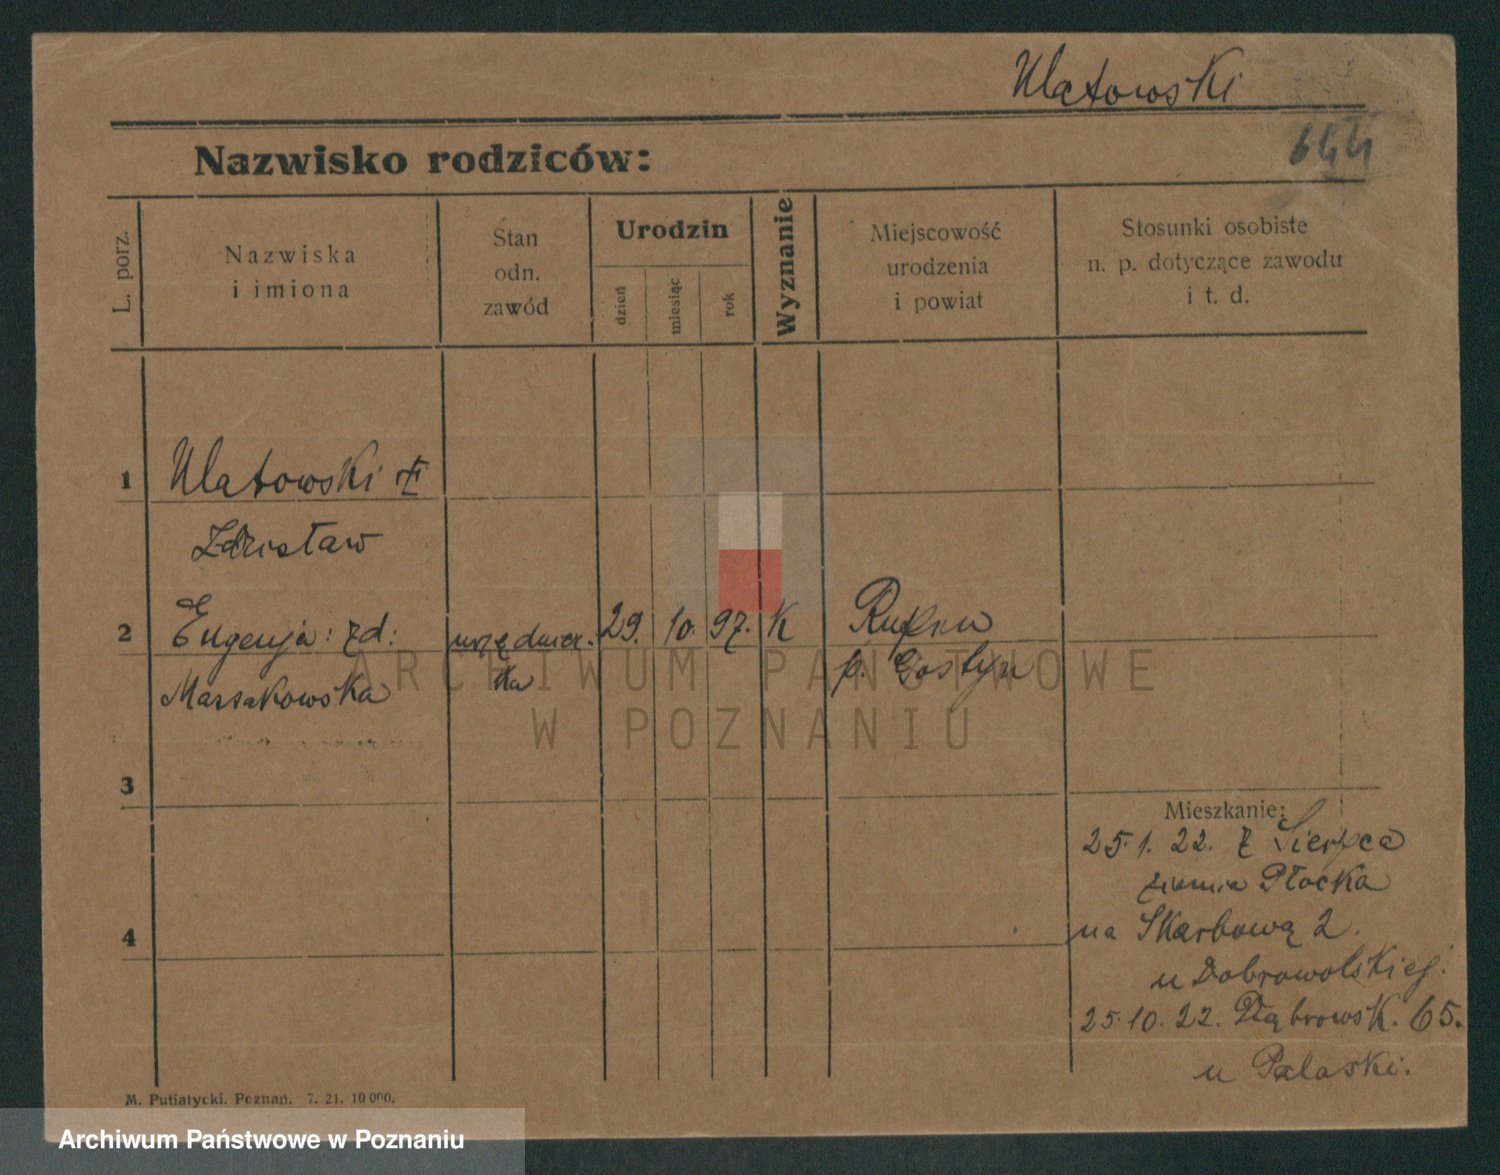 Ulatowski
644
Nazwisko rodziców:
L. porz.
Nazwiska
i imiona
Stan
odn.
zawód
Urodzin
dzień
miesiąc
rok
Wyznanie
Miejscowość
urodzenia
i powiat
Stosunki osobiste
n. p. dotyczące zawodu
i t. d.
1
Ulatowski
Zdzisław
2
Eugenja: zd: urzędnicz- 29. 10. 97. K
Marsakowska tka p. Gostyn
ARCHIWUM PAŃSTWOWE
W POZNANIU
3
Mieszkanie:
25.1.22. z Sierpca
ziemia Płocka
4
na Skarbową 2.
u Dobrowolskiej.
25.10.22. Dąbrowsk. 65.
u
M. Putiatycki. Poznań. 7. 21. 10 000.
Archiwum Państwowe w Poznaniu